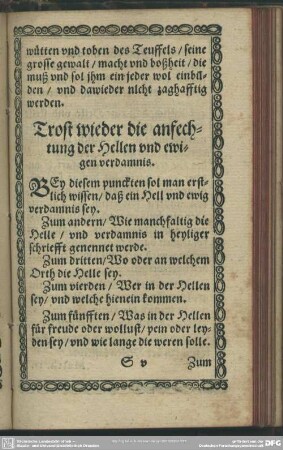 wütten vnd toben des Teuffels / seine
grosse gewalt / macht vnd boßheit / die
muß vnd sol jhm ein jeder wol einbil-
den / vnd dawieder nicht zaghafftig
werden.
Trost wieder die anfech-
tung der Hellen vnd ewi-
gen verdamnis.
BEy diesem punckten sol man erst-
lich wissen / daß ein Hell vnd ewig
verdamnis sey.
Zum andern / Wie manchfaltig die
Helle / vnd verdamnis in heyliger
schriefft genennet werde.
Zum dritten / Wo oder an welchem
Orth die Helle sey.
Zum vierden / Wer in der Hellen
sey / vnd welche hienein kommen.
Zum fünfften / Was in der Hellen
für freude oder wollust / pein oder ley-
den sey / vnd wie lange die weren solle.
S v Zum
DFG